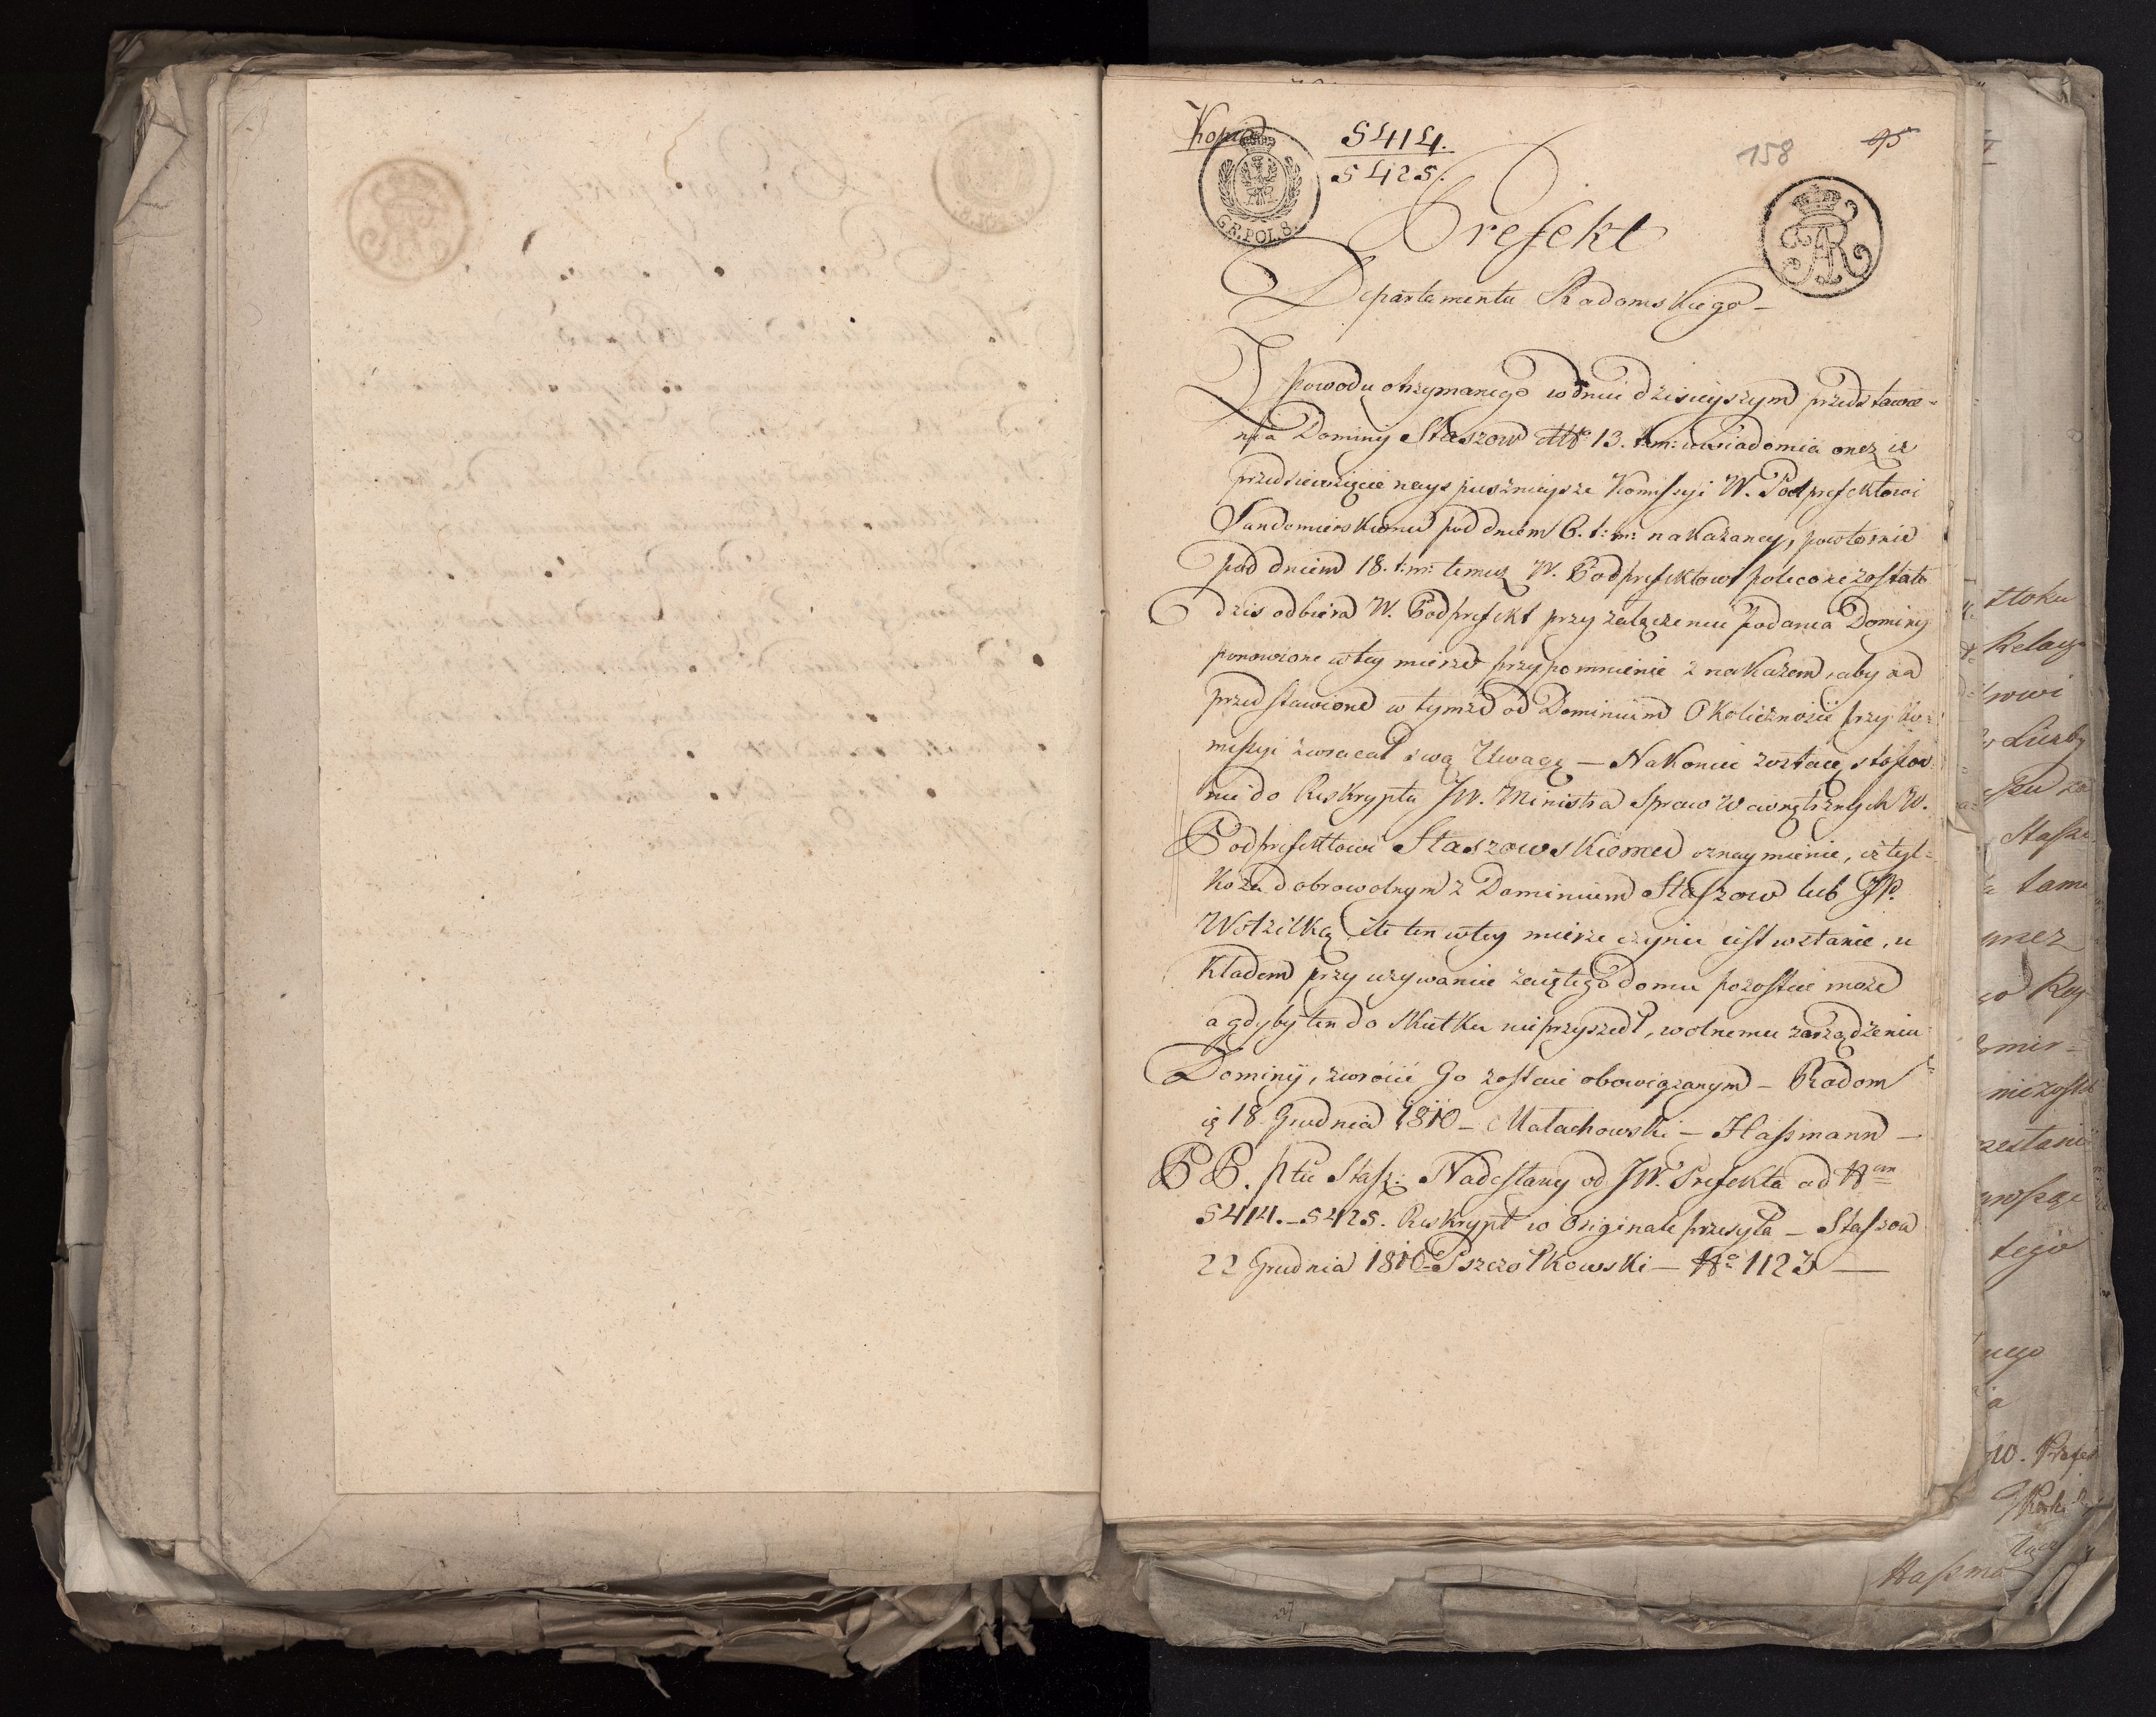 Kopia
5414.
5425.
158
95
GR. POL. 8.
Prefekt
Departamentu Radomskiego –
Z powodu otrzymanego w dniu dzisieyszym przedstawie-
nia Dominy Staszow N° 13. t:m: uwiadomia onez iż
przedsiewzięcie nayspiesznieysze Komissyi W. Podprefektowi
Sandomierskiemu pod dniem 6. t: m: nakazaney, powtornie
pod dniem 18. t:m: temuż W. Podprefektowi polecone zostało
dzis odbiera W. Podprefekt przy załączeniu podania Dominy
ponowione w tey mierze przypomnienie z nakazem, aby na
przedstawione w tymże od Dominium Okoliczności przy Ko-
missyi zwracał swą Uwagę – Nakoniec zostaię stosow-
nie do Reskryptu JW. Ministra Spraw Wewnętrznych W.
Podprefektowi Staszowskiemu oznaymienie, iż tyl-
ko za dobrowolnym z Dominium Staszow lub JP.
Wotzilką ile ten w tey mierze czynić iest wstanie, u
kładem przy używaniu zaiętego domu pozostać może
a gdyby ten do skutku nieprzyszedł, wolnemu zarządzeniu
Dominij, zwrócić Go zostaie obowiązanym – Radom
18. Grudnia 1810 – Małachowski – Hassmann –
PP. Ptu Stasz: Nadesłany od JW. Prefekta ad Nrm
5414. – 5425. Reskrypt w Originale przesyła – Staszow
22 Grudnia 1810 – Pszczołkowski – N° 1123 –
ttoku
Relacy
rowi
Liczby
Stasz
tam
tego
nego
W. Prefek
Hassma